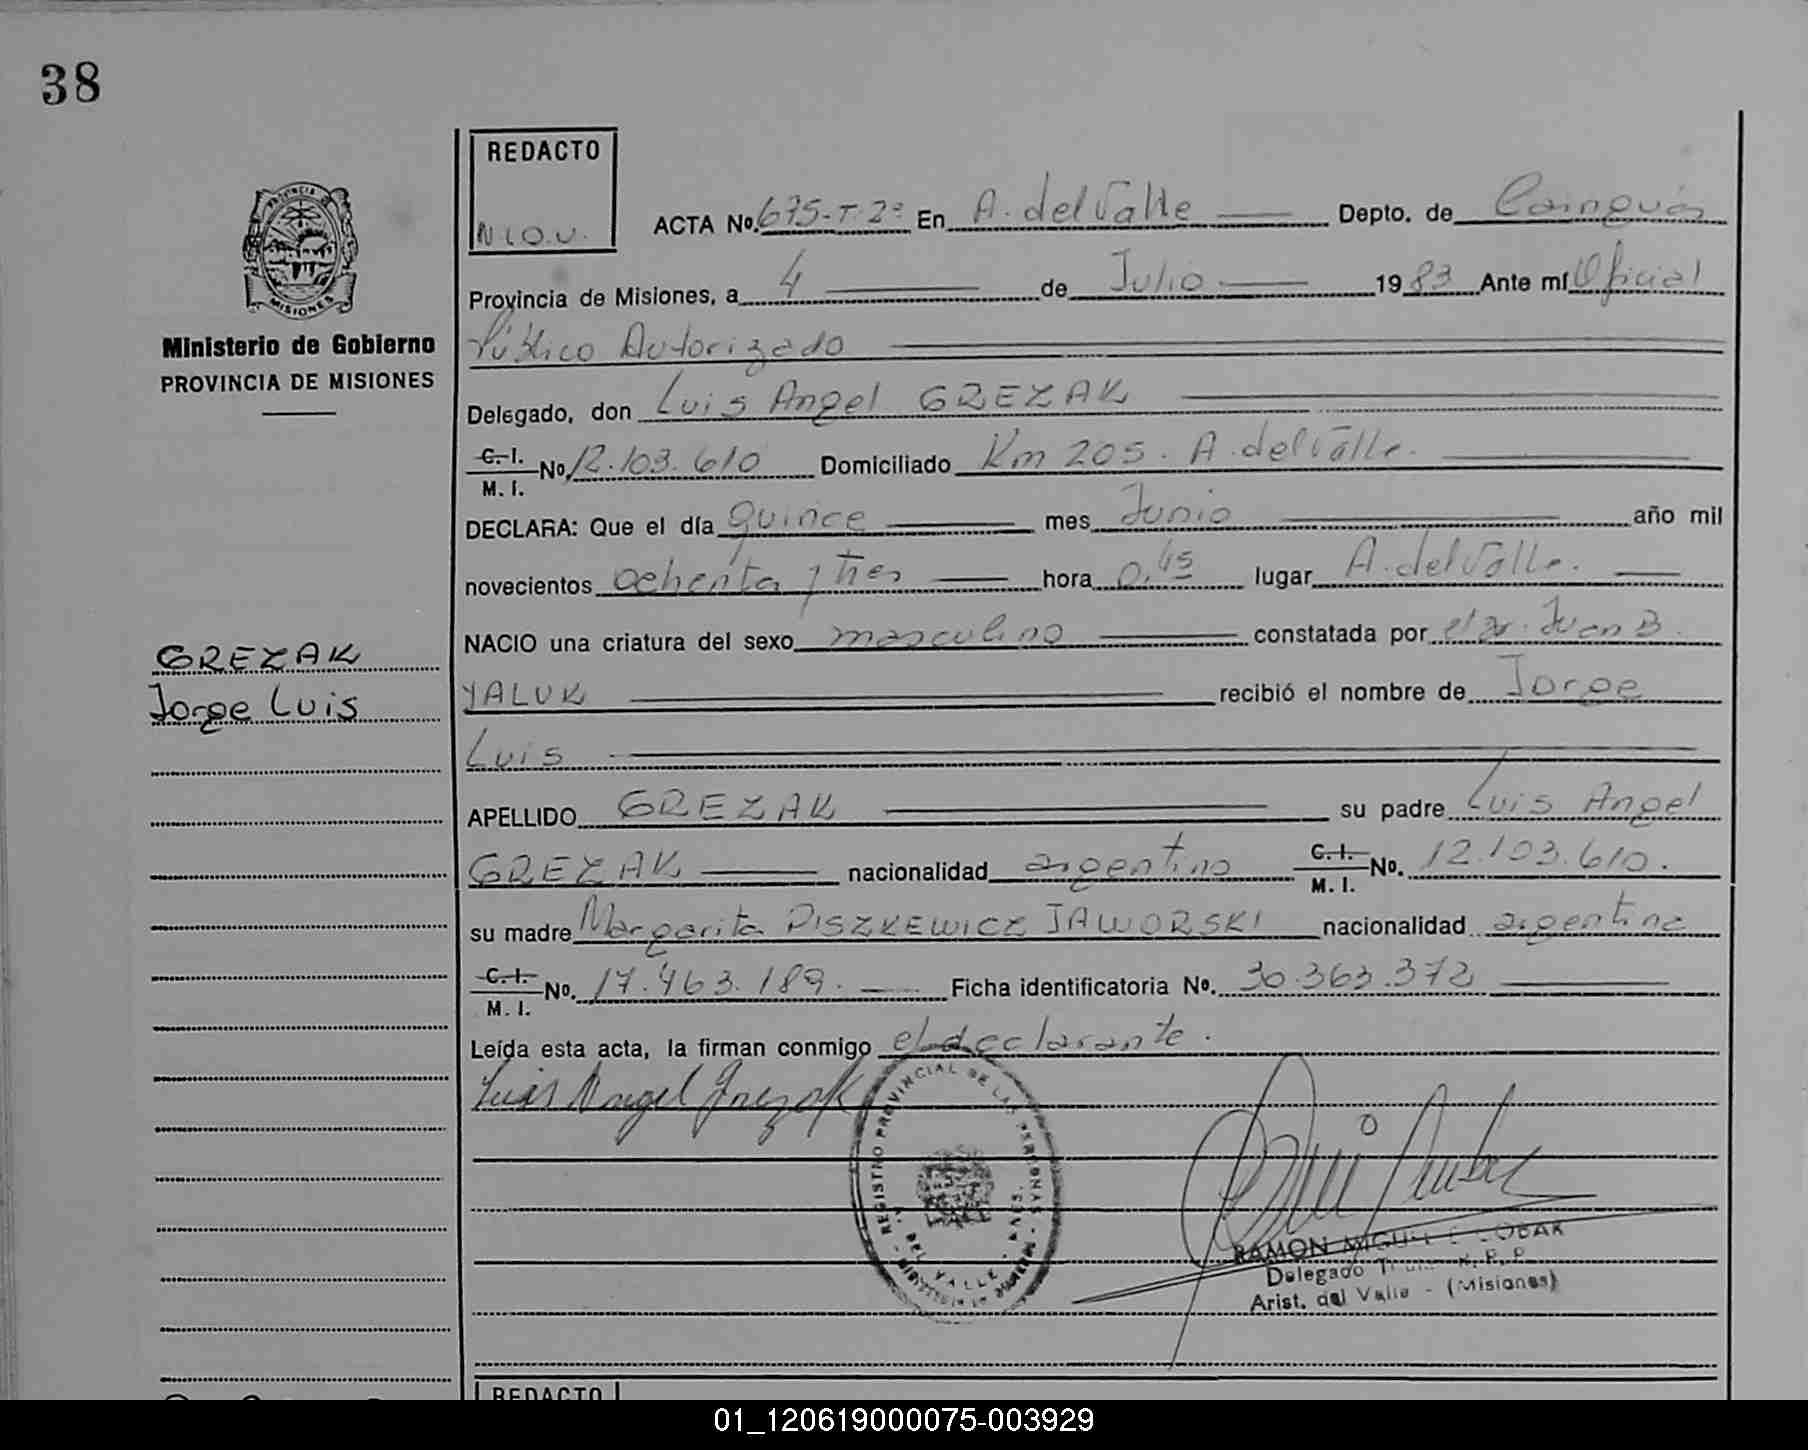 38
REDACTO
N.I.O.U.
ACTA No. 675-T-2º En A. del Valle Depto. de Cainguás
Provincia de Misiones, a 4 de Julio 1983 Ante mí Oficial
Público Autorizado
Delegado, don Luis Angel GREZAK
C. I. M. I. No. 12.103.610 Domiciliado Km 205. A. del Valle.
DECLARA: Que el día quince mes Junio año mil
novecientos ochenta y tres hora 0,45 lugar A. del Valle.
NACIO una criatura del sexo masculino constatada por el Dr. Juan B.
YALUK recibió el nombre de Jorge
Luis
APELLIDO GREZAK su padre Luis Angel
GREZAK nacionalidad argentino C. I. M. I. No. 12.103.610.
su madre Margarita PISZKEWICZ JAWORSKI nacionalidad argentina
C. I. M. I. No. 17.463.189. Ficha identificatoria No. 30.363.372
Leída esta acta, la firman conmigo el declarante.
Luis Angel Grezak
REGISTRO PROVINCIAL DE LAS PERSONAS
A. DEL VALLE - MNES.
RAMON MIGUEL ESCOBAR
Delegado Titular R. P. P.
Arist. del Valle - (Misiones)
PROVINCIA DE
MISIONES
Ministerio de Gobierno
PROVINCIA DE MISIONES
GREZAK
Jorge Luis
REDACTO
01_120619000075-003929